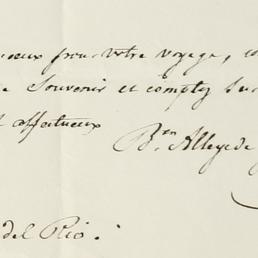 voeux pour votre voyage, co
Souvenir et comptez sur
affectueux
Bon Alleye de
del Rio.